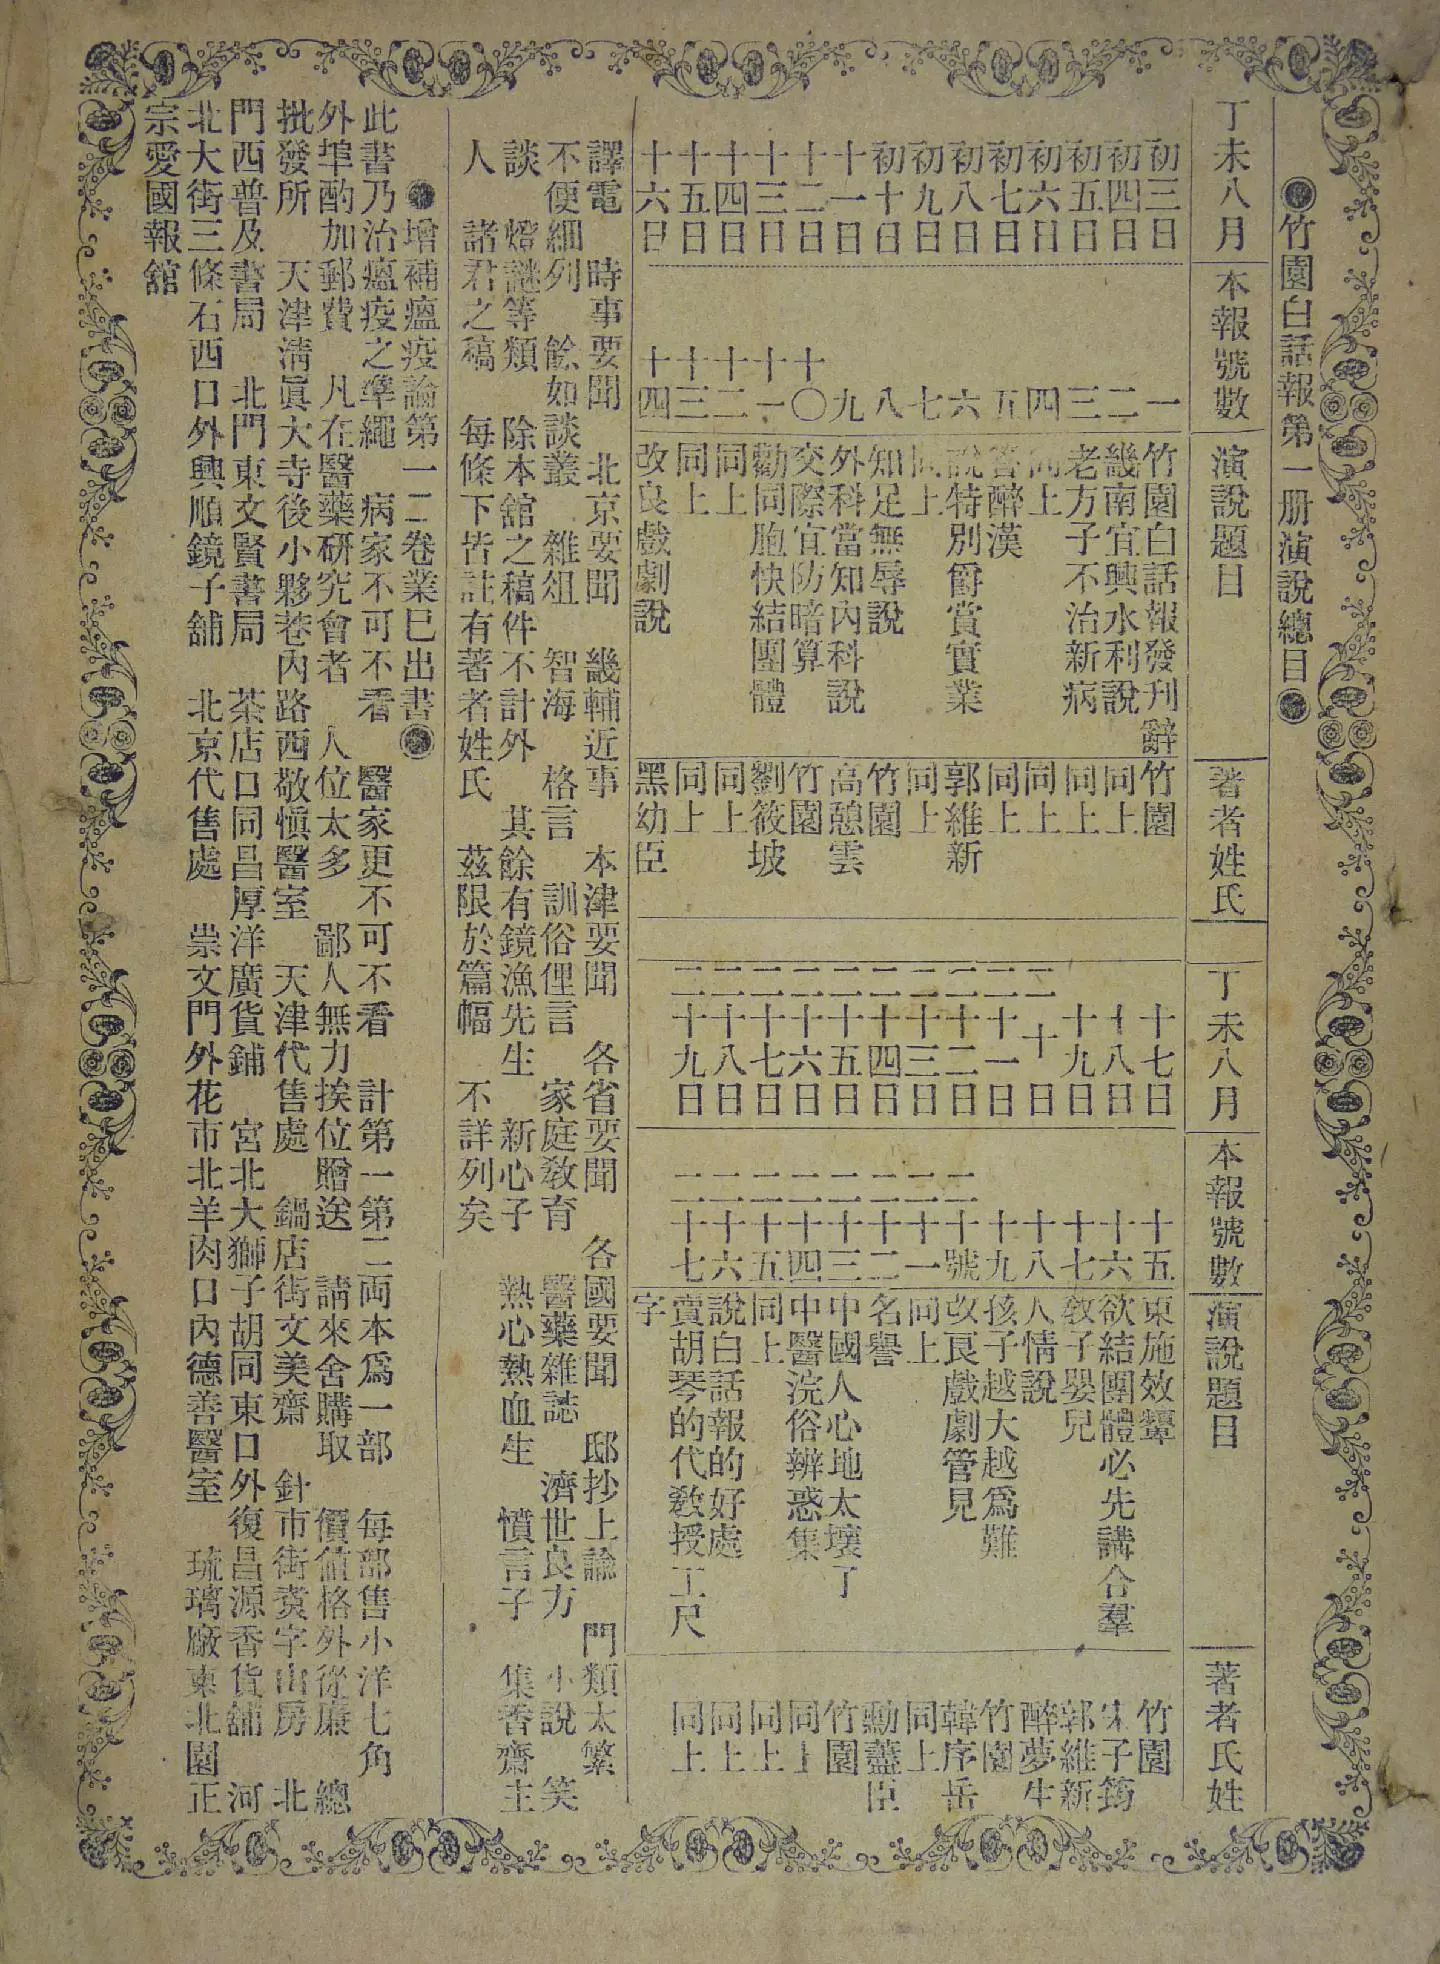 ●竹園白話報第一册演說總目●
丁未八月 本報號數 演說題目 著者姓氏 丁未八月 本報號數 演說題目 著者氏姓
初三日 一 竹園白話報發刊辭 竹園 十七日 十五 東施效顰 竹園
初四日 二 畿南宜興水利說 同上 十八日 十六 欲結團體必先講合羣 宋子筠
初五日 三 老方子不治新病 同上 十九日 十七 敎子嬰兒 郭維新
初六日 四 同上 同上 二十日 十八 人情說 醉夢生
初七日 五 答醉漢 同上 二十一日 十九 孩子越大越爲難 竹園
初八日 六 說特別爵賞實業 郭維新 二十二日 二十號 改良戲劇管見 韓序岳
初九日 七 同上 同上 二十三日 二十一 同上 同上
初十日 八 知足無辱說 竹園 二十四日 二十二 名譽 勳藎臣
十一日 九 外科當知內科說 高憩雲 二十五日 二十三 中國人心地太壞了 竹園
十二日 十〇 交際宜防暗算 竹園 二十六日 二十四 中醫浣俗辨惑集 同上
十三日 十一 勸同胞快結團體 劉筱坡 二十七日 二十五 同上 同上
十四日 十二 同上 同上 二十八日 二十六 說白話報的好處 同上
十五日 十三 同上 同上 二十九日 二十七 賣胡琴的代敎授工尺 同上
十六日 十四 改良戲劇說 黑幼臣 字
譯電 時事要聞 北京要聞 畿輔近事 本津要聞 各省要聞 各國要聞 邸抄上論 門類太繁
不便細列 餘如談叢 雜俎 智海 格言 訓俗俚言 家庭敎育 醫藥雜誌 濟世良方 小說 笑
談 燈謎等類 除本舘之稿件不計外 其餘有鏡漁先生 新心子 熱心熱血生 憤言子 集香齋主
人 諸君之稿 每條下皆註有著者姓氏 茲限於篇幅 不詳列矣
●增補瘟疫論第一二卷業巳出書●
此書乃治瘟疫之準繩 病家不可不看 醫家更不可不看 計第一第二両本爲一部 每部售小洋七角
外埠酌加郵費 凡在醫藥研究會者 人位太多 鄙人無力挨位贈送 請來舍購取 價值格外從廉 總
批發所 天津淸眞大寺後小夥巷內路西敬愼醫室 天津代售處 鍋店街文美齋 針市街 北
門西普及書局 北門東文賢書局 茶店口同昌厚洋廣貨鋪 宮北大獅子胡同東口外復昌源香貨舖 河
北大街三條石西口外興順鏡子舖 北京代售處 崇文門外花市北羊肉口內德善醫室 琉璃廠東北園正
宗愛國報舘